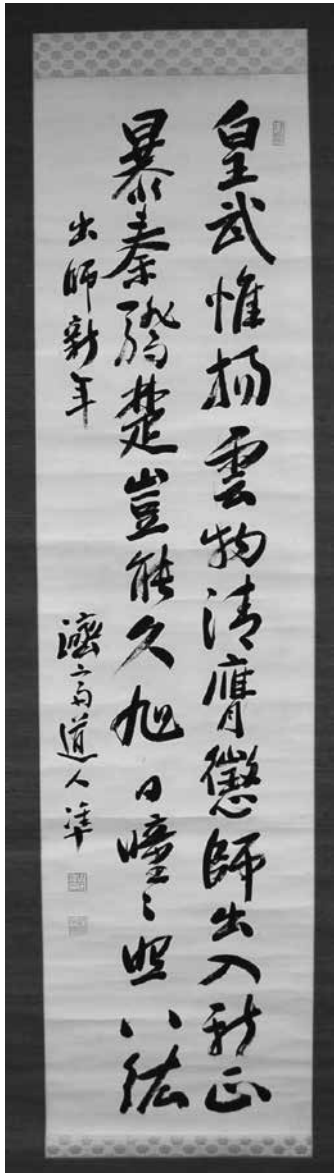 皇武惟揚雲物清膺懲師出入新正
暴秦驕楚豈能久旭日曈々照八紘
出師新年
濟高道人準